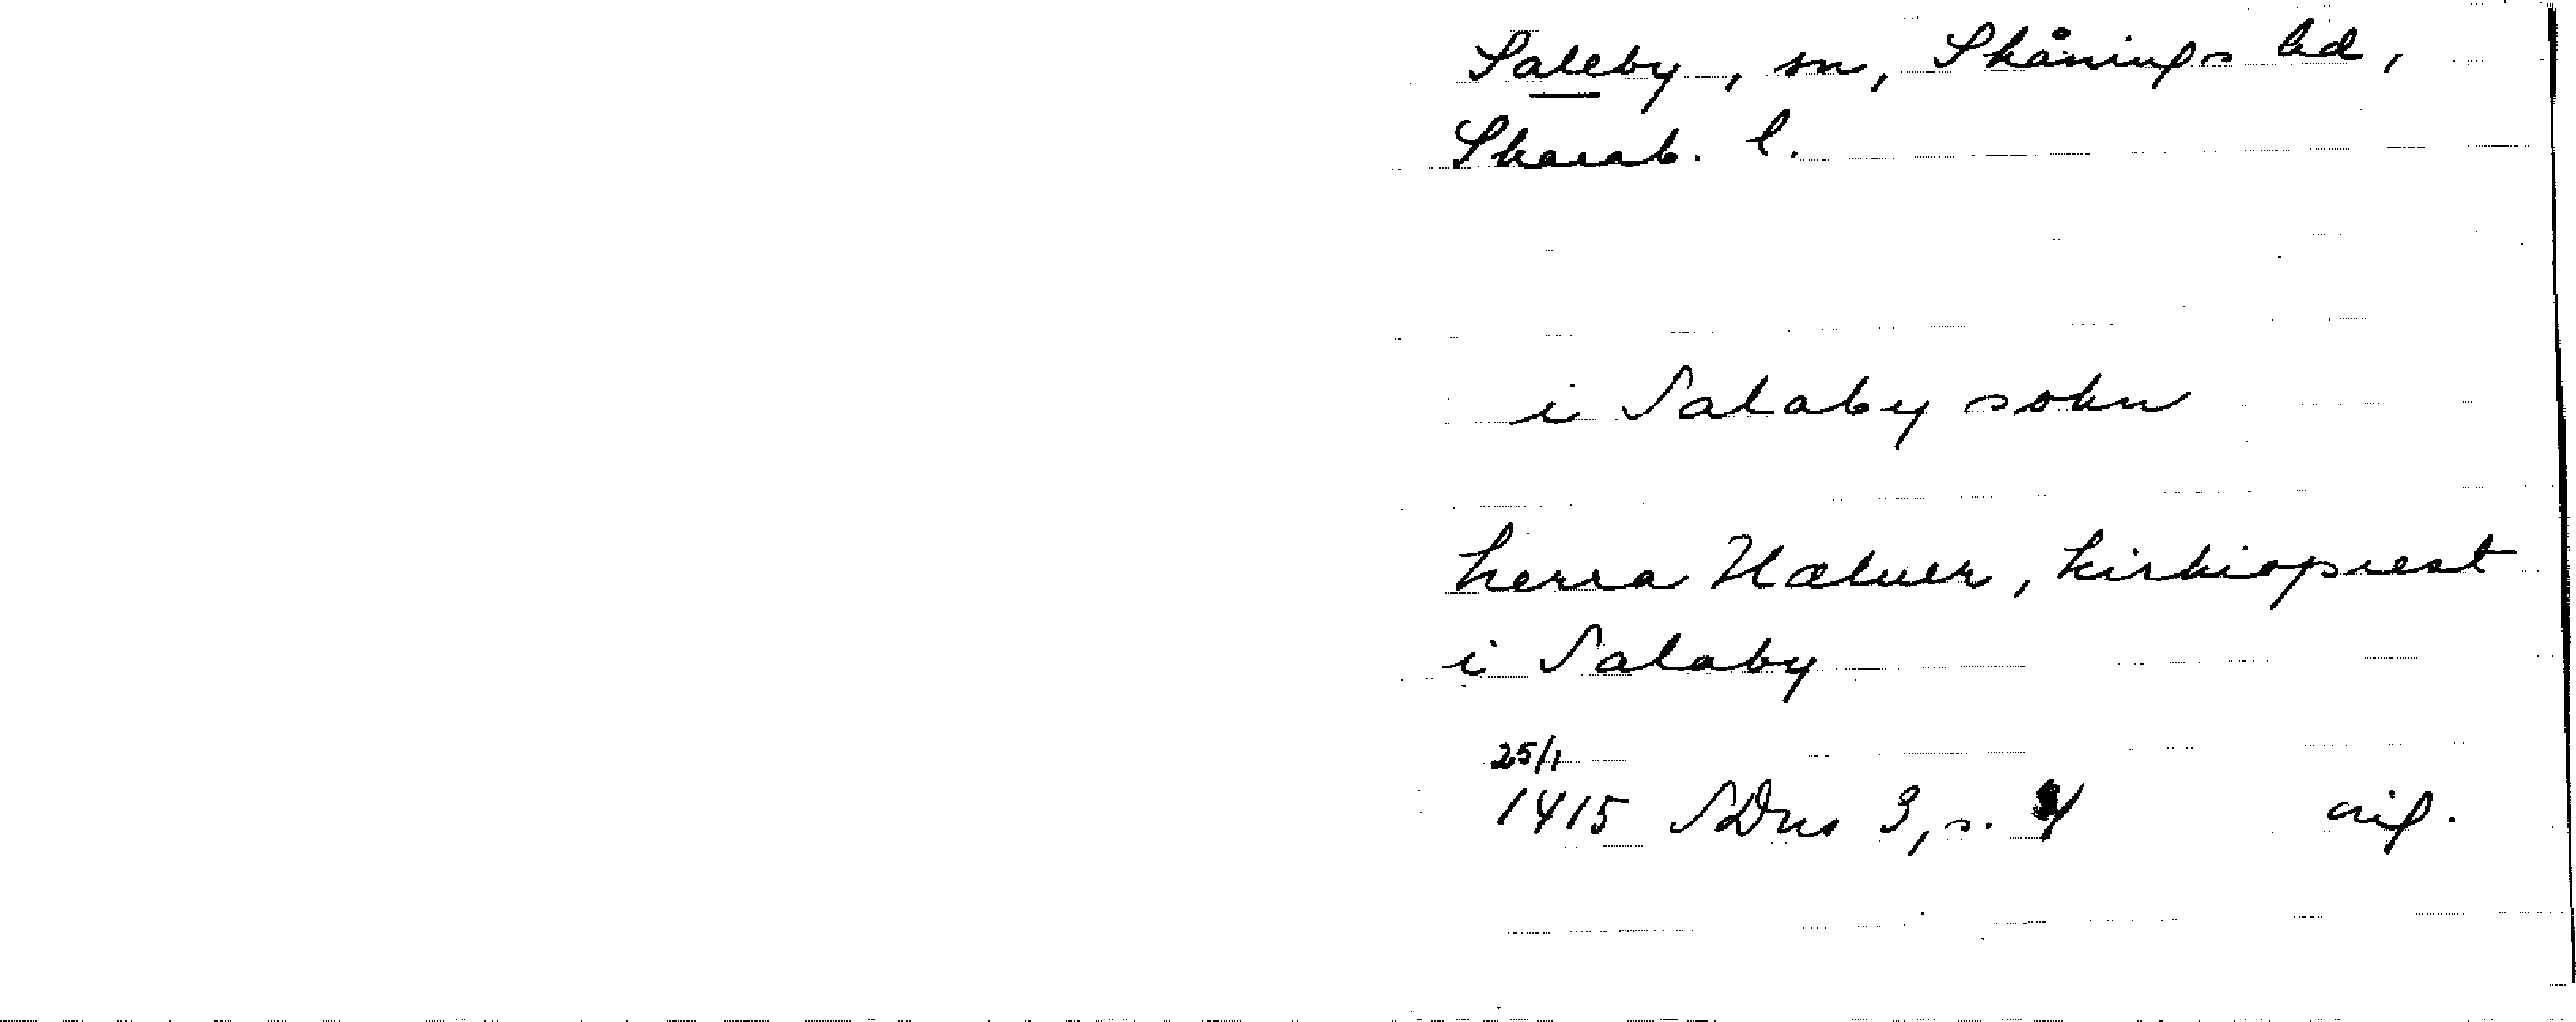 Saleby, sn, Skånings hd,
Skarab. l.
i Salaby sokn
herra Hæluer, kirkioprest
i Salaby
25/1
1415 SDns 3, s. 4 orig.